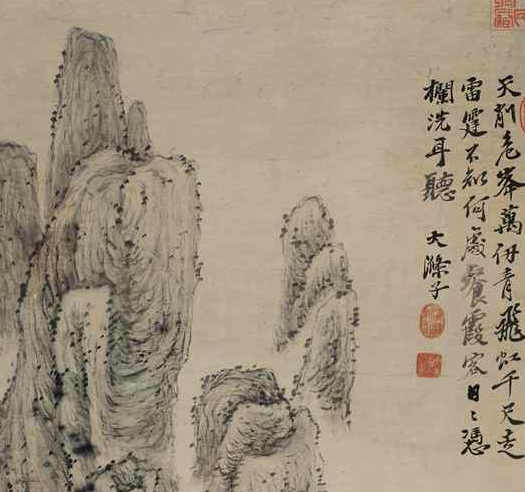 天削危峯萬仞青飛虹千尺走
雷霆不知何處餐霞客日〻憑
欄洗耳聽
大滌子